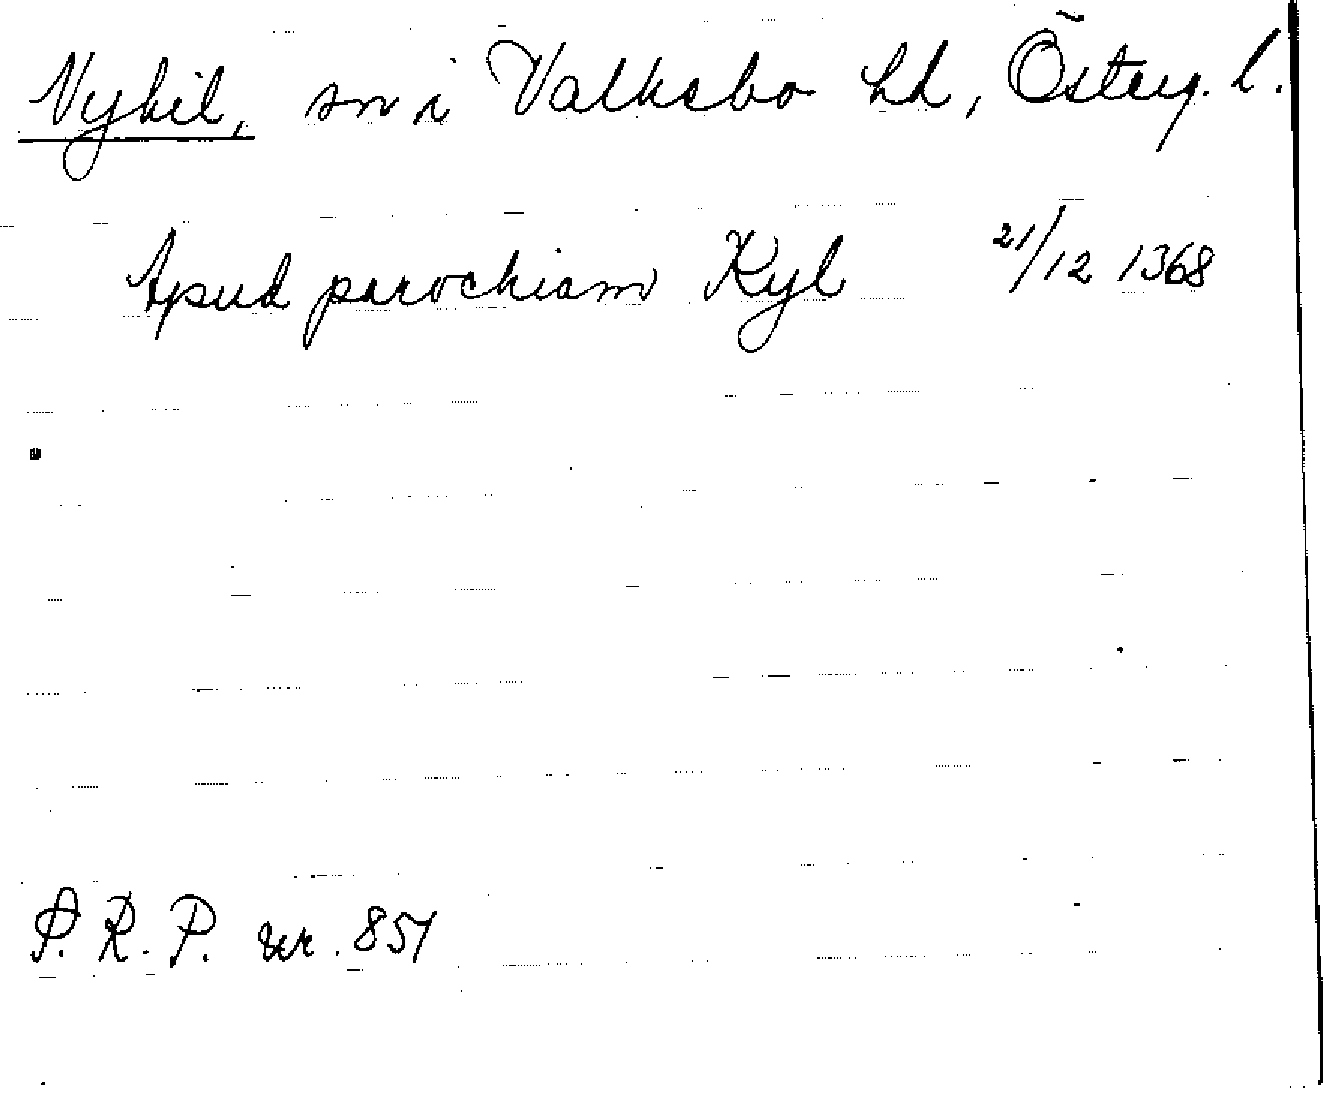 Vykil, sn i Valkebo hd, Österg. l.
Apud parochiam Kyl 21/12 1368
P. R. P. nr. 851